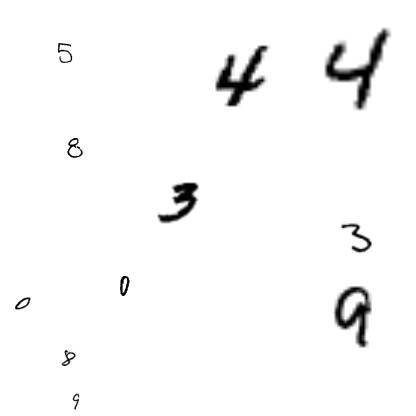 5 4 4
8
3
3
0 0 9
8
9